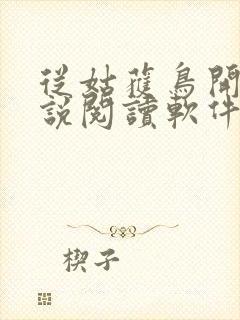 從姑蘇鳥開
説閱讀軟件
楔子